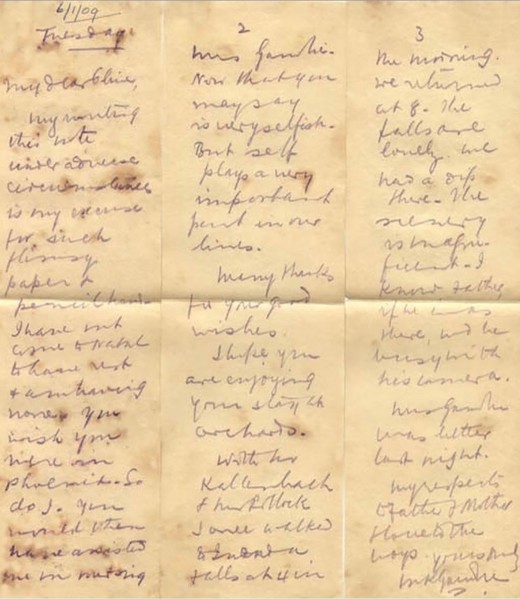 6/1/09
Tuesday
My dear Olive,
My writing
this note
under adverse
circumstances
is my excuse
for such
flimsy
paper &
pencil hand.
I have not
come to Natal
to have rest
& am having
none. You
wish you
were in
Phoenix. So
do I. You
would then
have assisted
me in nursing
2
Mrs Gandhi.
Now that you
may say
is very selfish.
But self
plays a very
important
part in our
lives.
Many thanks
for your good
wishes.
I hope you
are enjoying
your stay at
orchards.
With
Kallenbach
& Mr Pollock
I once walked
to Inanda
falls at 4 in
3
the morning.
We returned
at 8. The
falls are
lovely. We
had a dip
there. The
scenery
is magni-
ficent. I
know father,
if he was
there, wd be
busy with
his camera.
Mrs Gandhi
was better
last night.
My respects
to father & Mother
& love to the
boys. Yours
MKGandhi